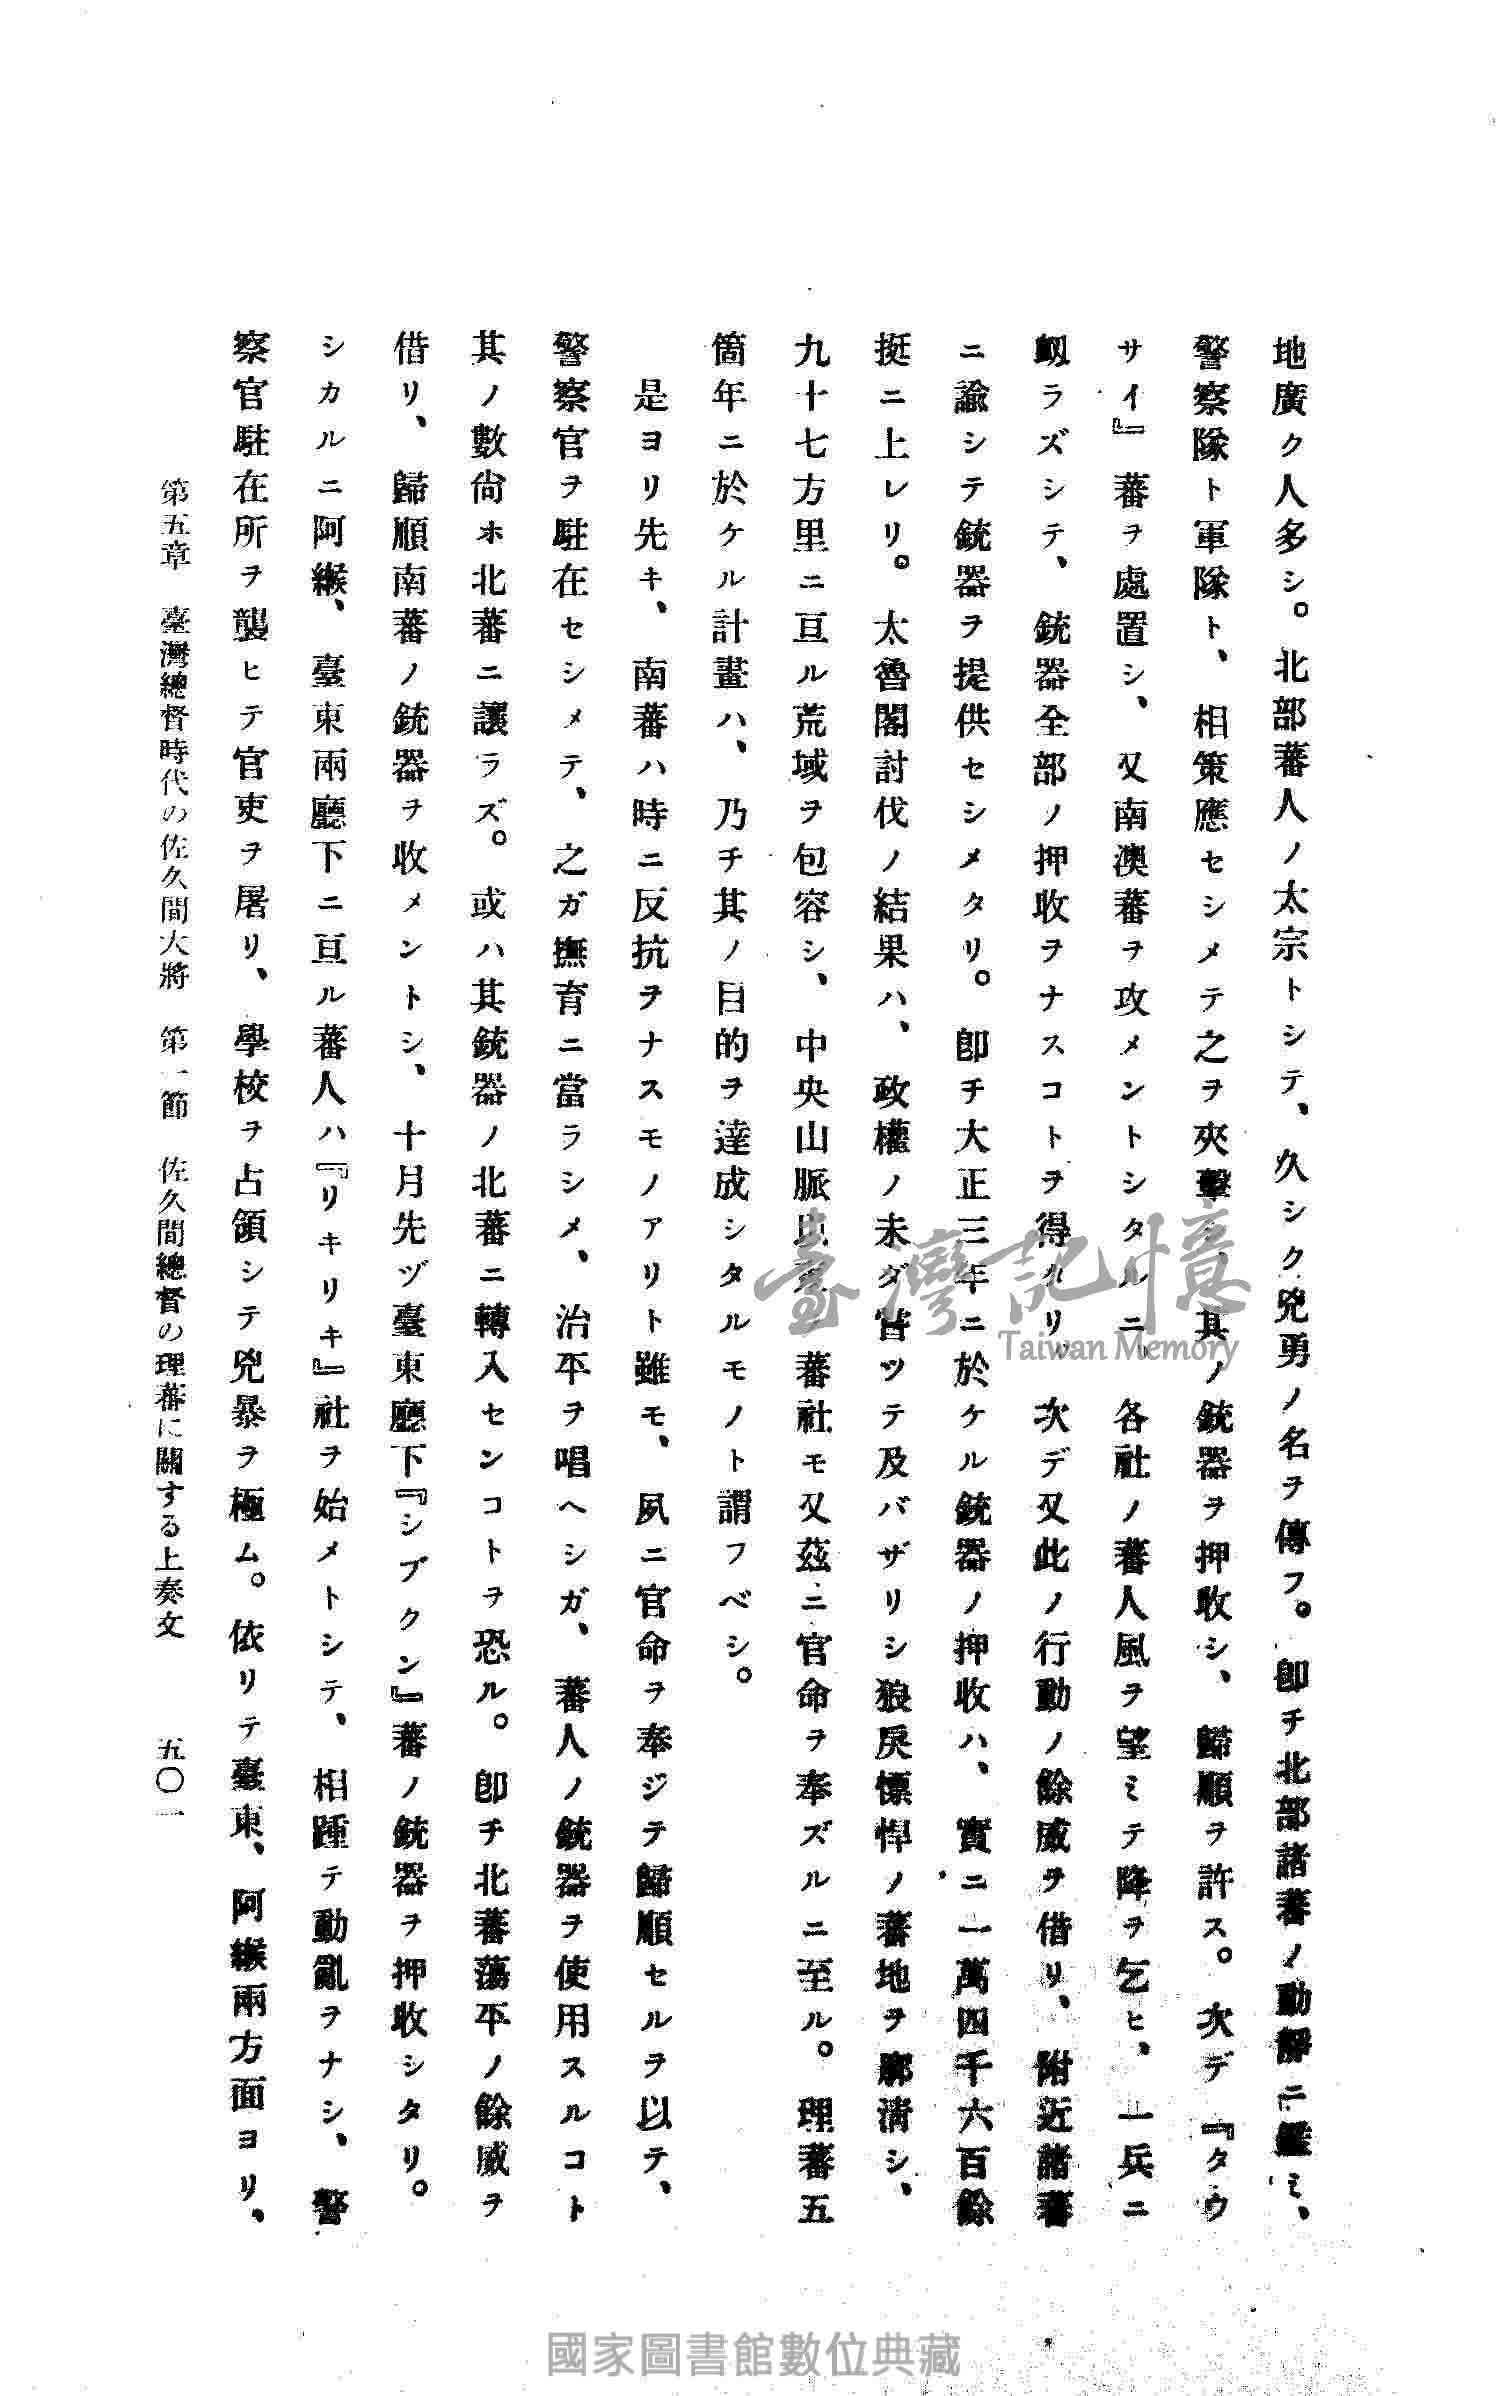 地廣ク人多シ。北部蕃人ノ太宗トシテ、久シク兇勇ノ名ヲ傳フ。卽チ北部諸蕃ノ動靜ニ鑑ミ、
警察隊ト軍隊ト、相策應セシメテ之ヲ夾擊シ、其ノ銃器ヲ押收シ、歸順ヲ許ス。次デ『タウ
サイ』蕃ヲ處置シ、又南澳蕃ヲ攻メントシタルニ、各社ノ蕃人風ヲ望ミテ降ヲ乞ヒ、一兵ニ
衂ラズシテ、銃器全部ノ押收ヲナスコトヲ得タリ。次デ又此ノ行動ノ餘威ヲ借リ、附近諸蕃
ニ諭シテ銃器ヲ提供セシメタリ。卽チ大正三年ニ於ケル銃器ノ押收ハ、實ニ一萬四千六百餘
挺ニ上レリ。太魯閣討伐ノ結果ハ、政權ノ未ダ嘗ツテ及バザリシ狼戾慓悍ノ蕃地ヲ廓淸シ、
九十七方里ニ亘ル荒域ヲ包容シ、中央山脈以東ノ蕃社モ又茲ニ官命ヲ奉ズルニ至ル。理蕃五
箇年ニ於ケル計畫ハ、乃チ其ノ目的ヲ達成シタルモノト謂フベシ。
是ヨリ先キ、南蕃ハ時ニ反抗ヲナスモノアリト雖モ、夙ニ官命ヲ奉ジテ歸順セルヲ以テ、
警察官ヲ駐在セシメテ、之ガ撫育ニ當ラシメ、治平ヲ唱ヘシガ、蕃人ノ銃器ヲ使用スルコト
其ノ數尙ホ北蕃ニ讓ラズ。或ハ其銃器ノ北蕃ニ轉入センコトヲ恐ル。卽チ北蕃蕩平ノ餘威ヲ
借リ、歸順南蕃ノ銃器ヲ收メントシ、十月先ヅ臺東廳下『シブクン』蕃ノ銃器ヲ押收シタリ。
シカルニ阿緱、臺東兩廳下ニ亘ル蕃人ハ『リキリキ』社ヲ始メトシテ、相踵テ動亂ヲナシ、警
察官駐在所ヲ襲ヒテ官吏ヲ屠リ、學校ヲ占領シテ兇暴ヲ極ム。依リテ臺東、阿緱兩方面ヨリ、
第五章 臺灣總督時代の佐久間大將 第一節 佐久間總督の理蕃に關する上奏文 五〇一
臺灣記憶
Taiwan Memory
國家圖書館數位典藏